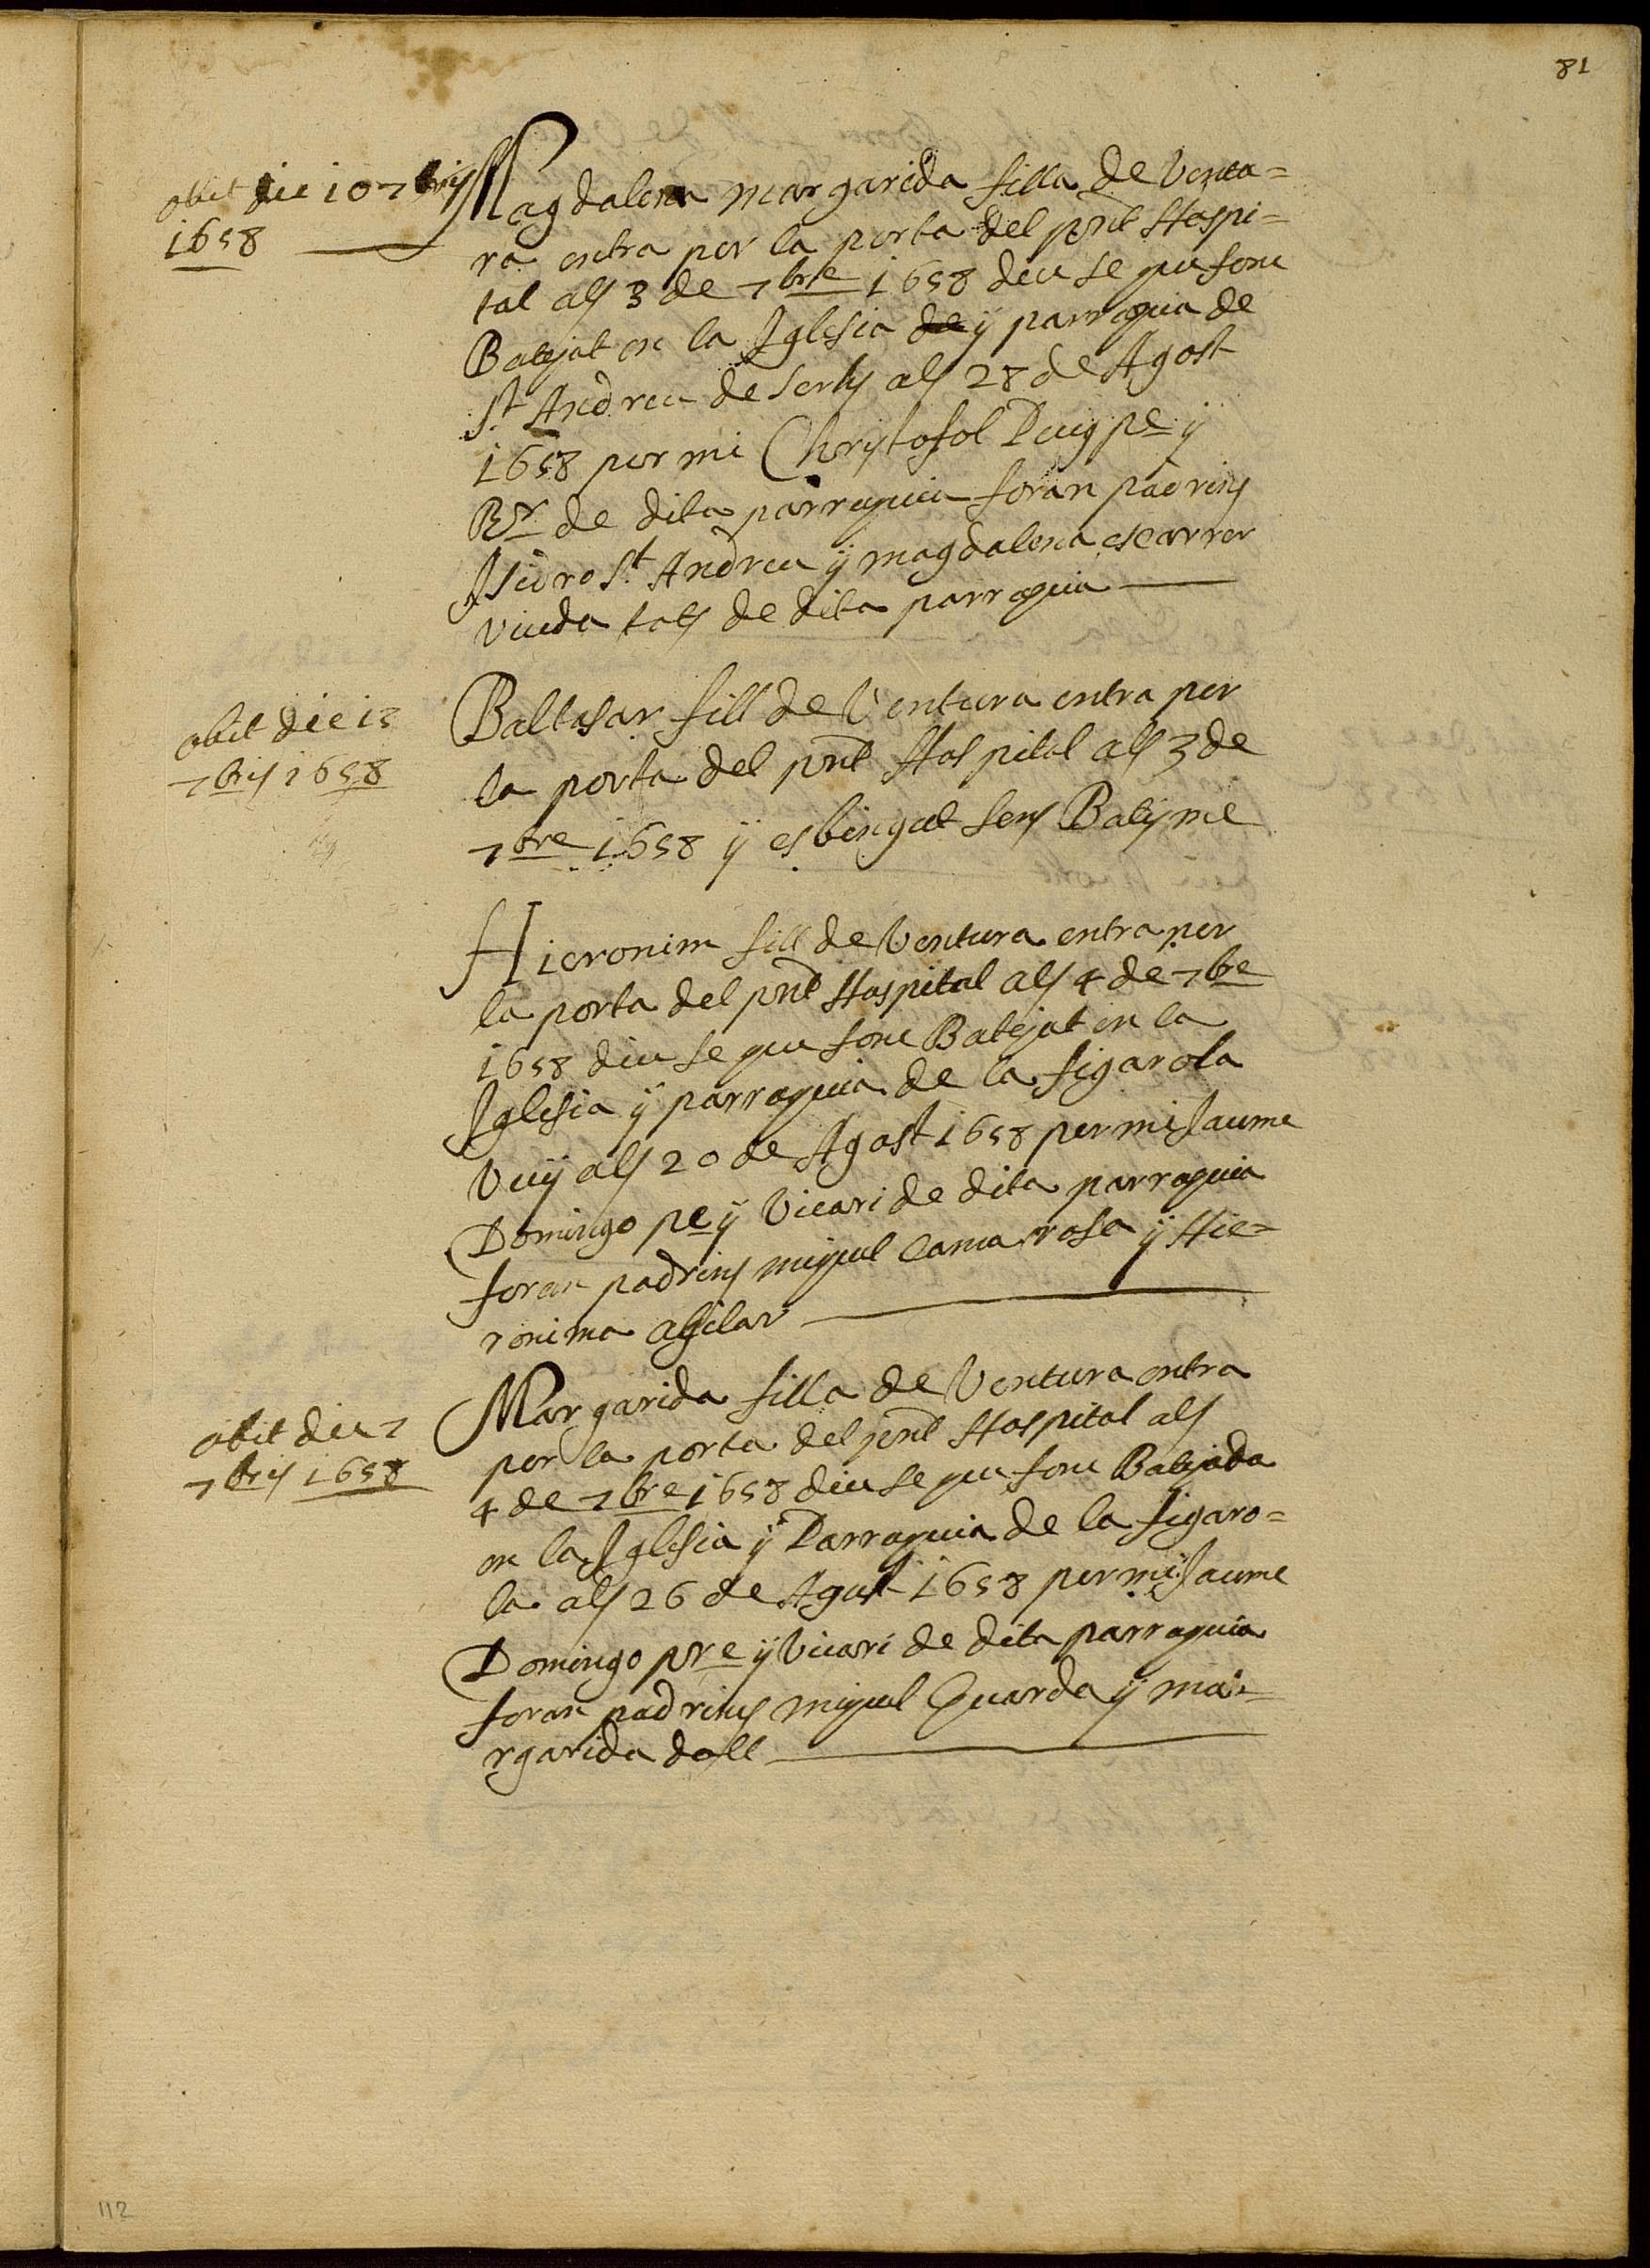 81
obit die 10 7bris
1658
Magdalena margarida filla de Ventu=
ra entra per la porta del pnt Hospi=
tal als 3 de 7bre 1658 diu se que fonc
Batejat en la Iglesia de y parroquia de
St Andreu de als 28 de Agost
1658 per mi Christofol Puig pe y
Rr de dita parroquia foran padrins
Isidro St Andreu y magdalena escarrer
viuda tots de dita parroquia
obit die 13
7bris 1658
Baltasar fill de Ventura entra per
la porta del pnt Hospital als 3 de
7bre 1658 y es bingut sens Batisme
Hieronim fill de Ventura entra per
la porta del pnt Hospital als 4 de 7bre
1658 diu se que fonc Batejat en la
Iglesia y parroquia de la figarola
Vuy als 20 de Agost 1658 per mi Jaume
Domingo pe y Vicari de dita parroquia
foran padrins miquel cama rosa y Hie=
ronima
obit die 7
7bris 1658
Margarida filla de Ventura entra
per la porta del pnt Hospital als
4 de 7bre 1658 diu se que fonc Batejada
en la Iglesia y Parroquia de la figaro=
la als 26 de Agost 1658 per mi Jaume
Domingo pre y Vicari de dita parroquia
foran padrins miquel Guarda y ma=
rgarida doll
112